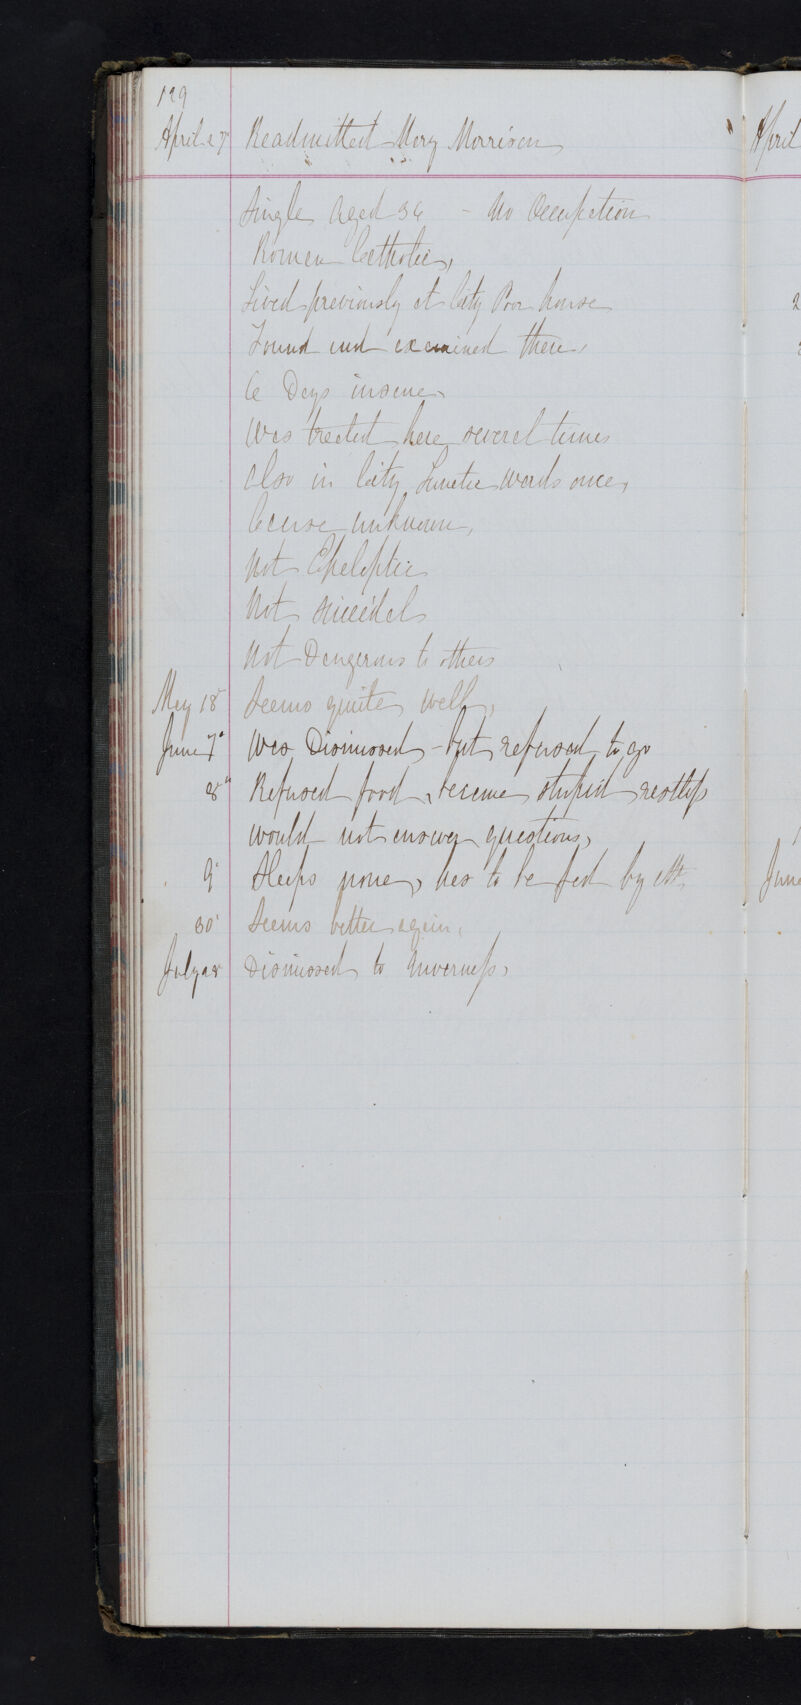 129
April 27 Readmitted Mary Morrison
Single Aged 36 - No Occupation
Roman Catholic,
Lived previously at City Poor house
Found and examined there,
6 Days insane,
Was treated here several times
also in City Lunatic wards once,
Cause unknown,
Not Epeleptic
Not Suicidal
Not Dangerous to others
May 18 Seems quite well,
June 7" Was Dismissed - but refused to go
8" Refused food, became stupid restless
would not answer questions,
9" Sleeps none, has to be fed by
30" Seems better again,
July 28 Dismissed to Inverness,
April
2
June